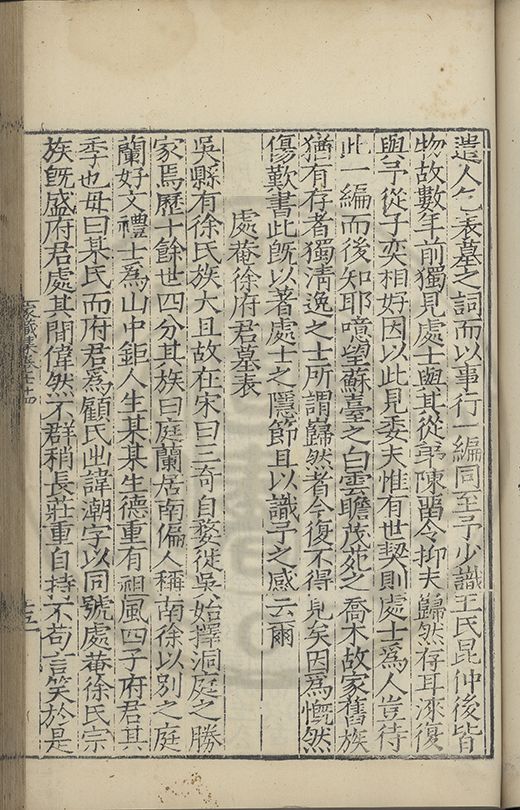 遣人乞表墓之詞而以事行一編同至予少識王氏昆仲後皆
物故數年前獨見處士與其從弟陳留令抑夫巋然存耳深復
與予從子奕相好因以此見委夫惟有世契則處士爲人豈待
此一編而後知耶噫望蘇臺之白雲瞻茂苑之喬木故家舊族
猶有存者獨清逸之士所謂巋然者今復不得見矣因爲慨然
傷歎書此旣以著處士之隱節且以識予之感云爾
處菴徐府君墓表
吳縣有徐氏族大且故在宋曰三奇自婺徙吳始擇洞庭之勝
家焉歷十餘世四分其族曰庭蘭居南偏人稱南徐以別之庭
蘭好文禮士爲山中鉅人生某某生德重有祖風四子府君其
季也母曰某氏而府君爲顧氏出諱潮字以同號處菴徐氏宗
族旣盛府君處其間偉然不群稍長莊重自持不苟言笑於是
家藏集卷七十四